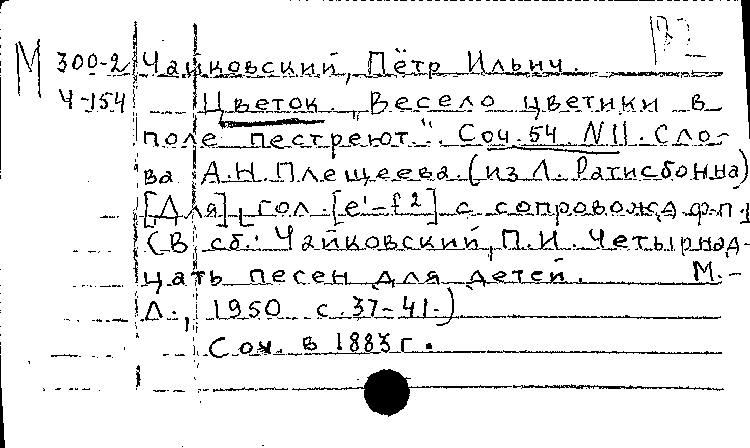 М 300-2 Чайковский, Пётр Ильич.
Ч-154 Цветок. „Весело цветики в
поле пестреют“. Соч. 54 N 11. Сло-
ва А.Н. Плещеева. (из Л. Ратисбонна)
[Для] гол. [e¹-f²] с сопровожд. ф-п.
(В сб.: Чайковский, П.И. Четырнад-
цать песен для детей. М.-
Л., 1950 с. 37-41.)
Соч. в 1883 г.